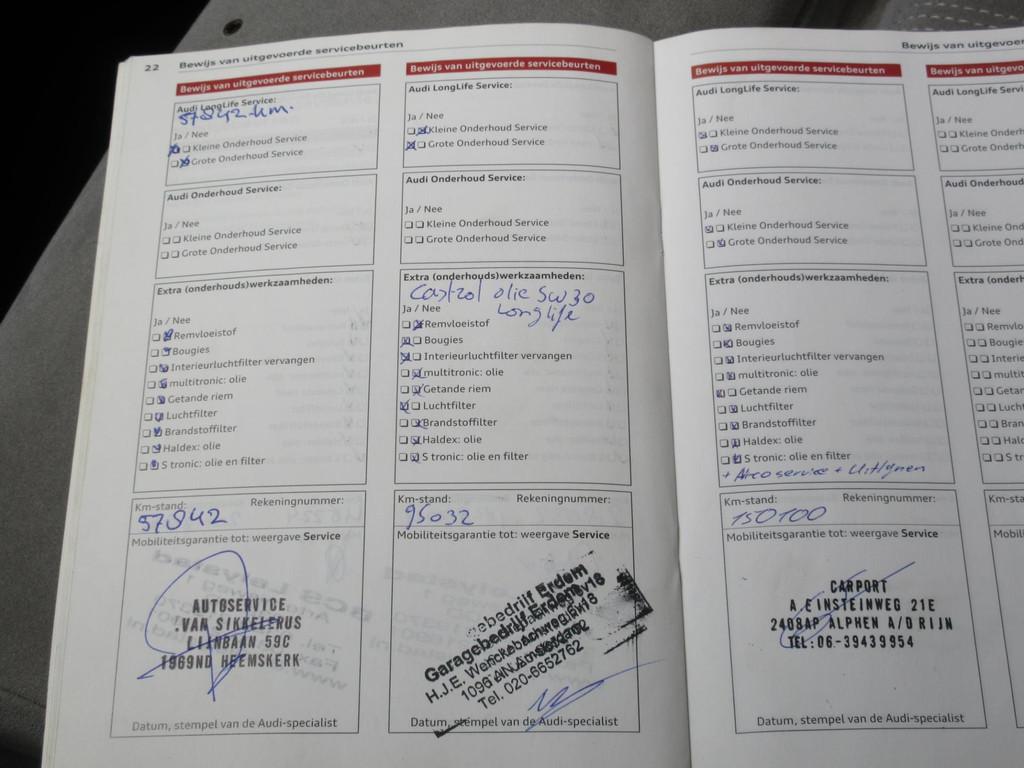 22 Bewijs van uitgevoerde servicebeurten
Bewijs van uitgevoerde servicebeurten
Audi LongLife Service:
57842 km.
Ja / Nee
Kleine Onderhoud Service
Grote Onderhoud Service
Audi Onderhoud Service:
Ja / Nee
Kleine Onderhoud Service
Grote Onderhoud Service
Extra (onderhouds)werkzaamheden:
Ja / Nee
Remvloeistof
Bougies
Interieurluchtfilter vervangen
multitronic: olie
Getande riem
Luchtfilter
Brandstoffilter
Haldex: olie
S tronic: olie en filter
Km-stand: Rekeningnummer:
57842
Mobiliteitsgarantie tot: weergave Service
AUTOSERVICE
VAN SIKKELERUS
LIJNBAAN 59C
1969ND HEEMSKERK
Datum, stempel van de Audi-specialist
Bewijs van uitgevoerde servicebeurten
Audi LongLife Service:
Ja / Nee
Kleine Onderhoud Service
Grote Onderhoud Service
Audi Onderhoud Service:
Ja / Nee
Kleine Onderhoud Service
Grote Onderhoud Service
Extra (onderhouds)werkzaamheden:
Castrol olie 5W30
Longlife
Ja / Nee
Remvloeistof
Bougies
Interieurluchtfilter vervangen
multitronic: olie
Getande riem
Luchtfilter
Brandstoffilter
Haldex: olie
S tronic: olie en filter
Km-stand: Rekeningnummer:
95032
Mobiliteitsgarantie tot: weergave Service
Garagebedrijf Erdem
H.J.E. Wenckebachweg
Tel. 020-6652762
Datum, stempel van de Audi-specialist
Bewijs van uitgevoer
Bewijs van uitgevoerde servicebeurten
Audi LongLife Service:
Ja / Nee
Kleine Onderhoud Service
Grote Onderhoud Service
Audi Onderhoud Service:
Ja / Nee
Kleine Onderhoud Service
Grote Onderhoud Service
Extra (onderhouds)werkzaamheden:
Ja / Nee
Remvloeistof
Bougies
Interieurluchtfilter vervangen
multitronic: olie
Getande riem
Luchtfilter
Brandstoffilter
Haldex: olie
S tronic: olie en filter
+ Aircoservice + Uitlijnen
Km-stand: Rekeningnummer:
150100
Mobiliteitsgarantie tot: weergave Service
CARPORT
A.EINSTEINWEG 21E
2408AP ALPHEN A/D RIJN
TEL:06-39439954
Datum, stempel van de Audi-specialist
Bewijs van uitgevo
Audi LongLife Servi
Ja / Nee
Kleine Onderh
Grote Onderho
Audi Onderhoud
Ja / Nee
Kleine Onderh
Grote Onderh
Extra (onderh
Ja / Nee
Remvlo
Bougie
Interie
multit
Getar
Luch
Bran
Hald
S tr
Km-sta
Mobil